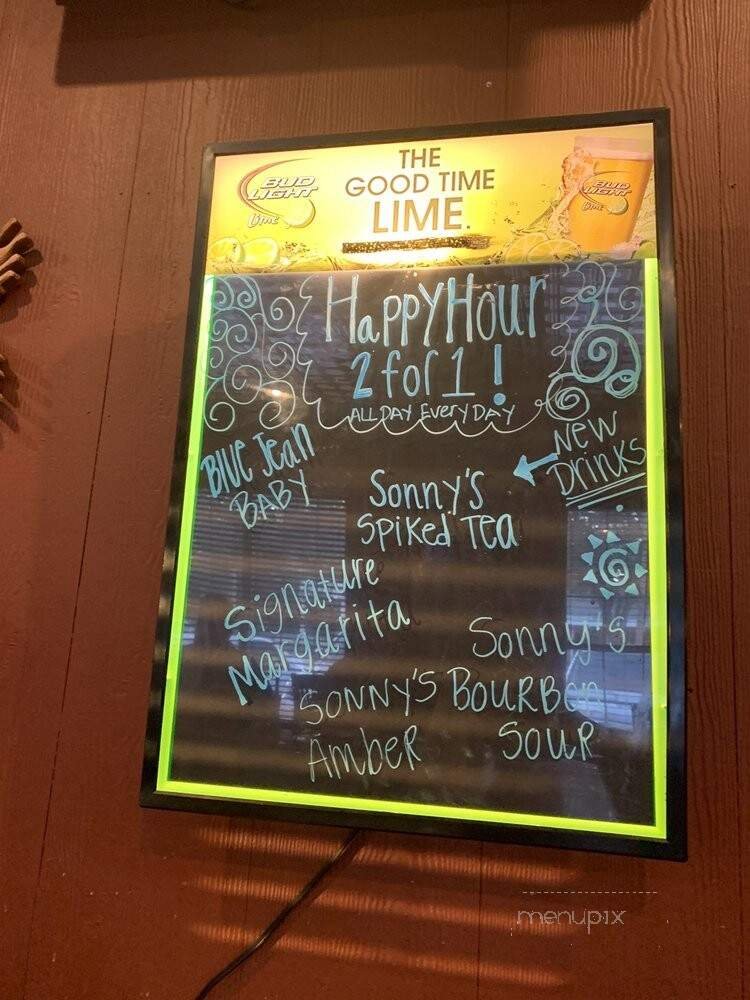 BUD
LIGHT
Lime
THE
GOOD TIME
LIME.
BUD
LIGHT
Lime
HappyHour
2 for 1 !
ALL DAY EVERY DAY
NEW
DRINKS
BlUE JEan
BABY
Sonny's
SPiKed TEa
Signature
Margarita
Sonny's
BOURBon
SOUR
SONNY'S
AmbER
menupix